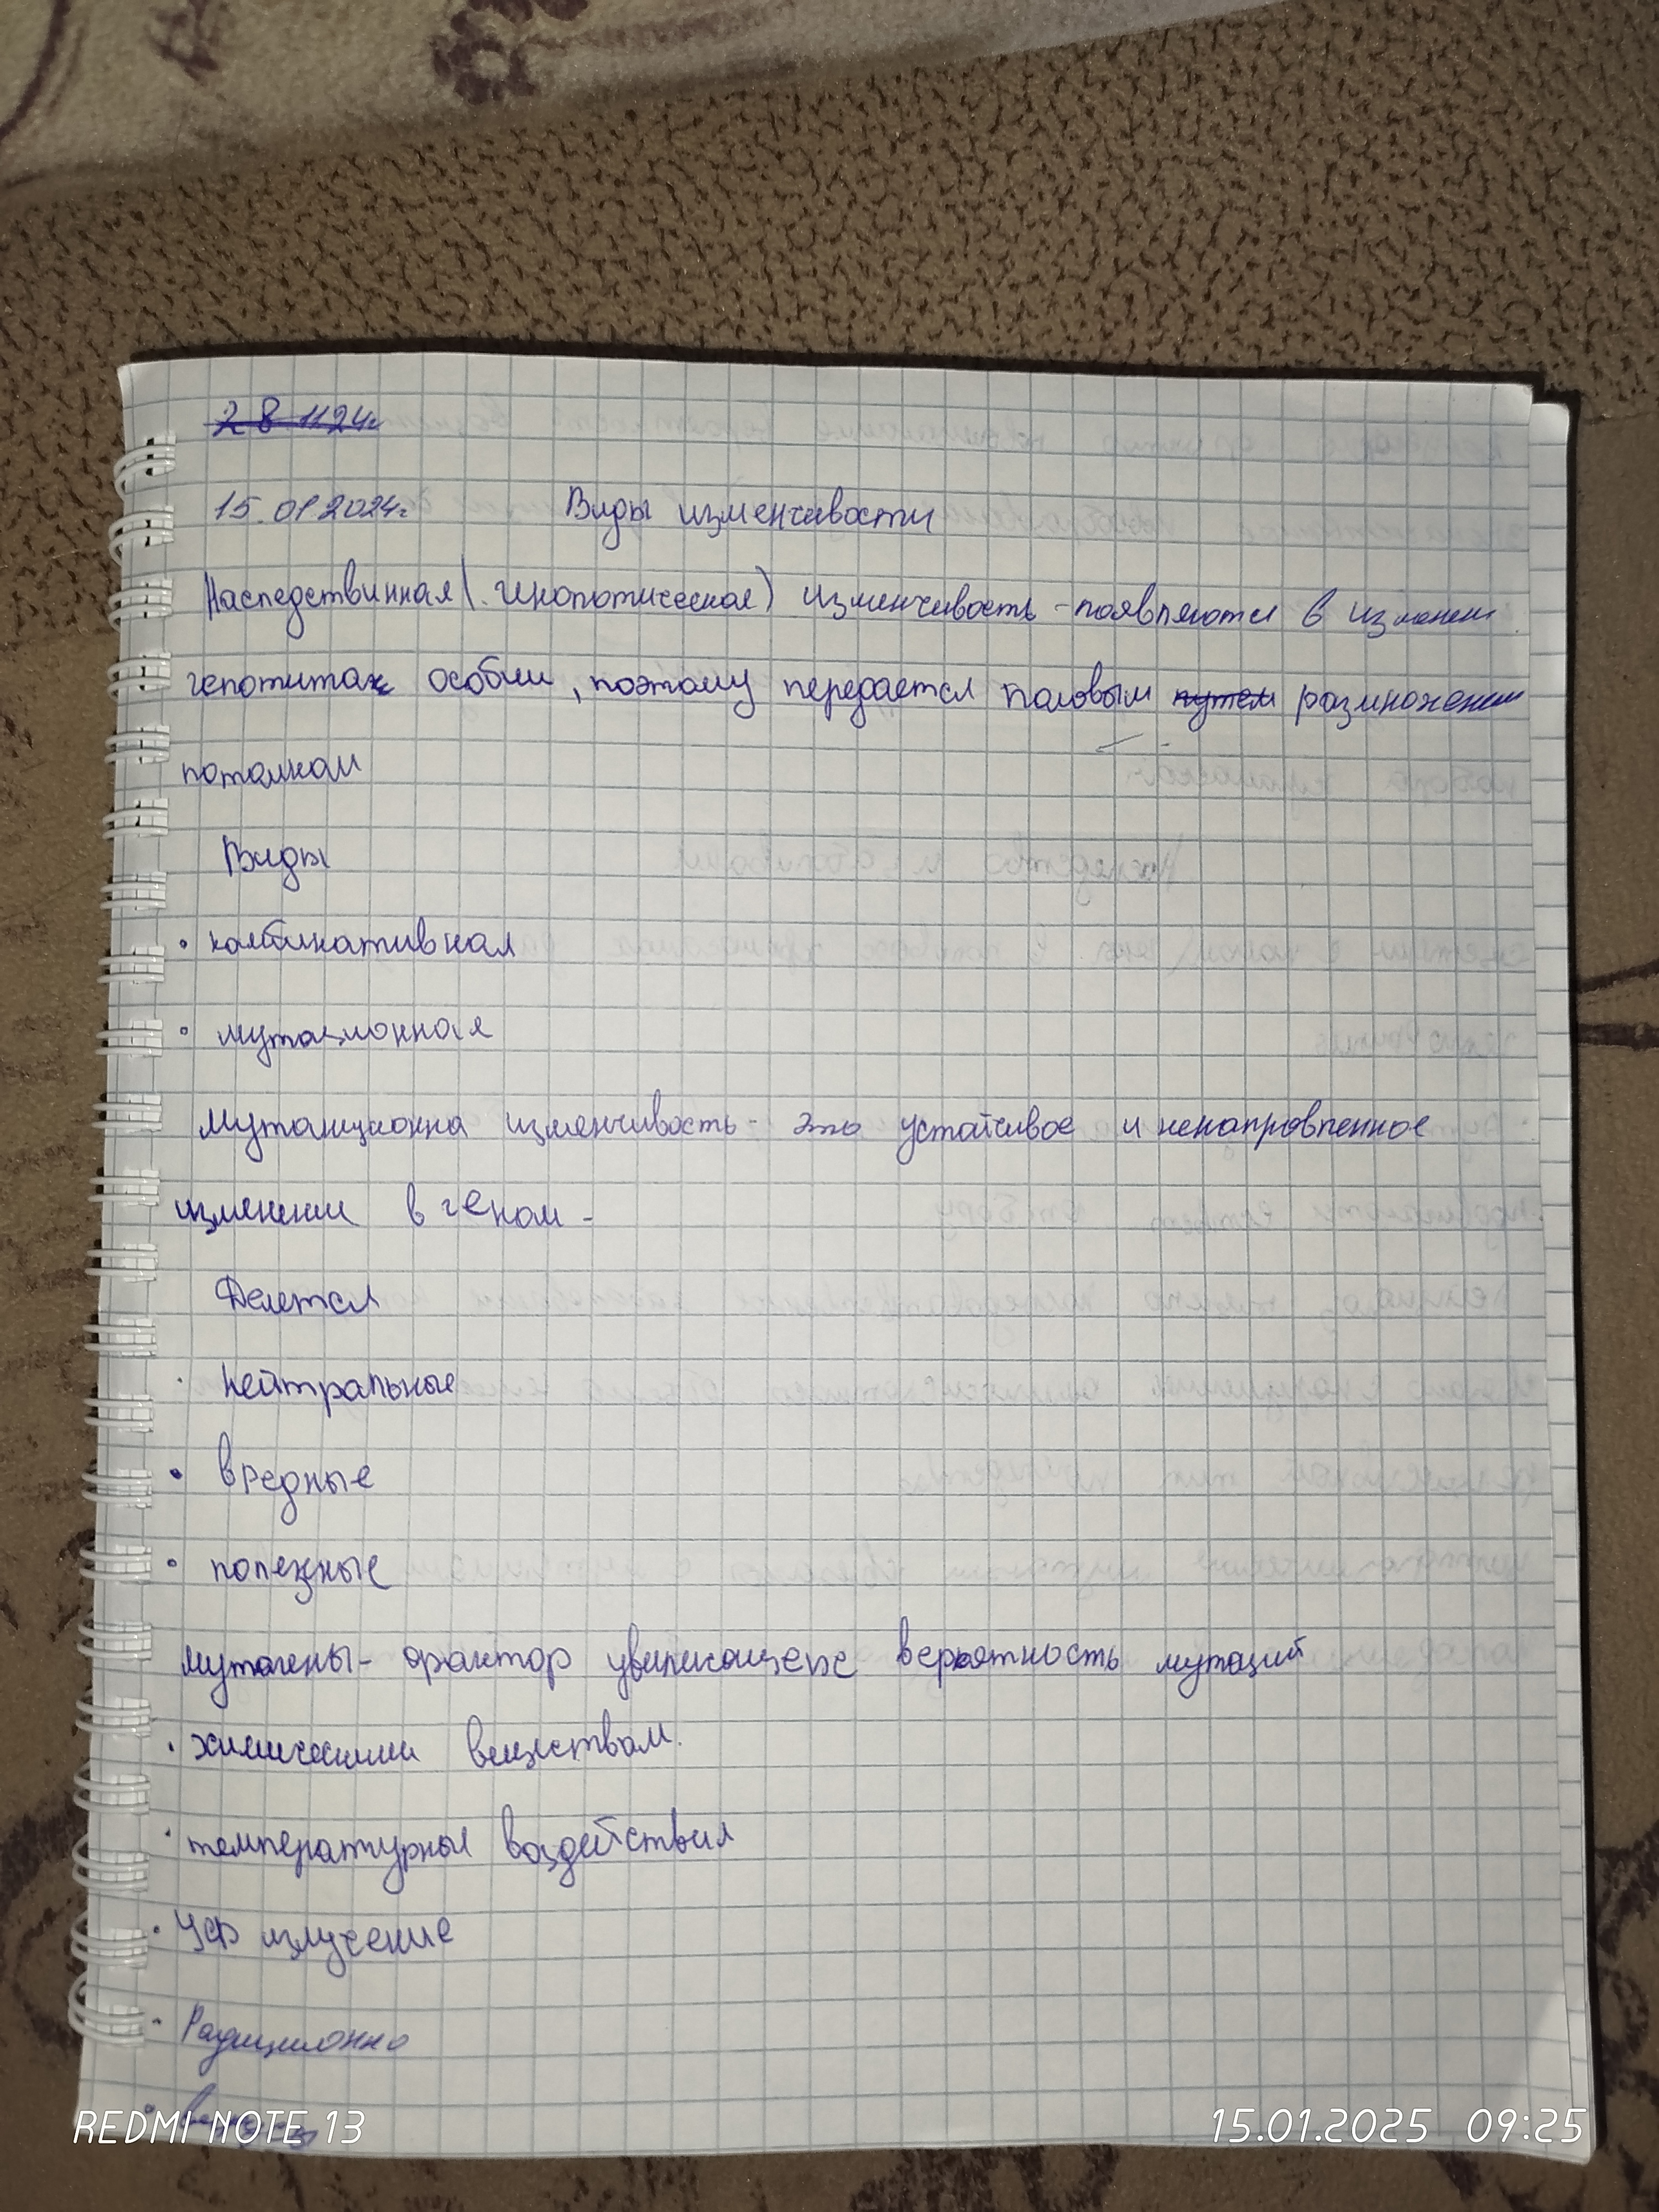 28 1124г
15.01 2024г. Виды изменчивости
Наследствинная (генопотическая) изменчивость - появляются в изменен
гепотитах особии, поэтому передается половым путем размножением
потомкам
Виды
• комбинативная
• мутационная
Мутанционна изменчивость - это устойчивое и ненаправленное
изменении в геном -
Делется
· Нейтральные
• вредные
• полезные
мутагены - фактор увеличающие вероятность мутаций
· химическими веществам.
· температурные воздействия
· УФ излучение
· Радиционно
· вирусы
REDMI NOTE 13
15.01.2025 09:25